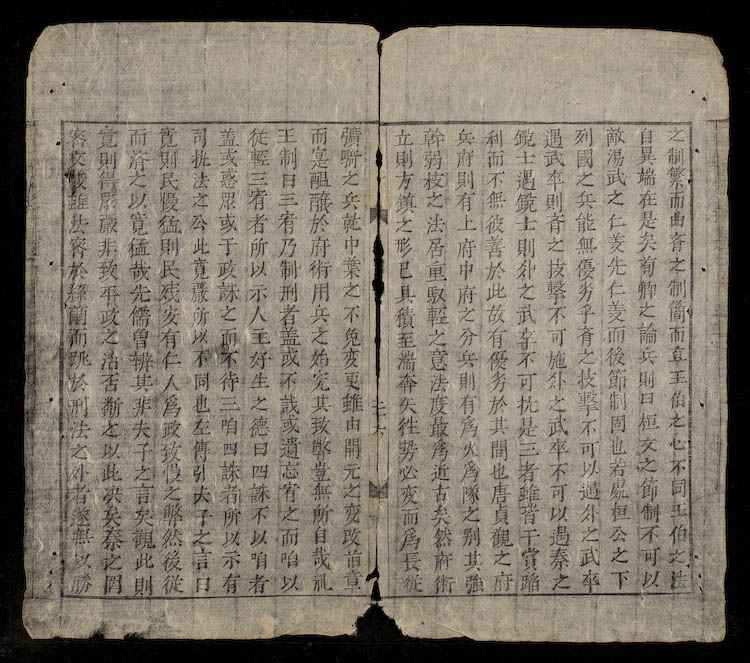 之制繁而曲齊之制簡而直王伯之心不同王伯之法
自異端在是矣荀卿之論兵則曰桓文之節制不可以
敵湯武之仁義先仁義而後節制閑也若處桓公之下
列國之兵能無優劣乎齊之技擊不可以遇魏之武卒
遇武卒則齊之技擊不可施魏之武卒不可以遇秦之
銳士遇銳士則魏之武卒不可抗是三者雖皆干賞蹈
利而不無彼善於此故有優劣於其間也唐貞觀之府
兵府則有上府中府之分兵則有爲火爲隊之別其強
幹弱枝之法居重馭輕之意法度最爲近古矣然府術
立則方鎮之形已具積至湍奔矢徃勢必変而爲長従
彍騎之兵就中葉之不免変更雖由開元之変改前章
而寔醞釀於府術用兵之始究其致弊豈無所自哉礼
王制曰三宥乃制刑者盖或不哉或遺忘宥之而咱以
従輕三宥者所以示人王好生之德曰四誅不以咱者
盖或惑衆或于政誅之而不待三咱四誅者所以示有
司执法之公此寛嚴所以不同也左傳引夫子之言曰
寛則民慢猛則民残安有仁人爲政致慢之弊然後従
而済之以寛猛哉先儒曽辨其非夫子之言矣觀此則
寛則得衆嚴非致平政之治否斷之以此决矣秦之罔
密文峻雖法密於絲蘭而跳於刑法之外者遂無以勝
二十六